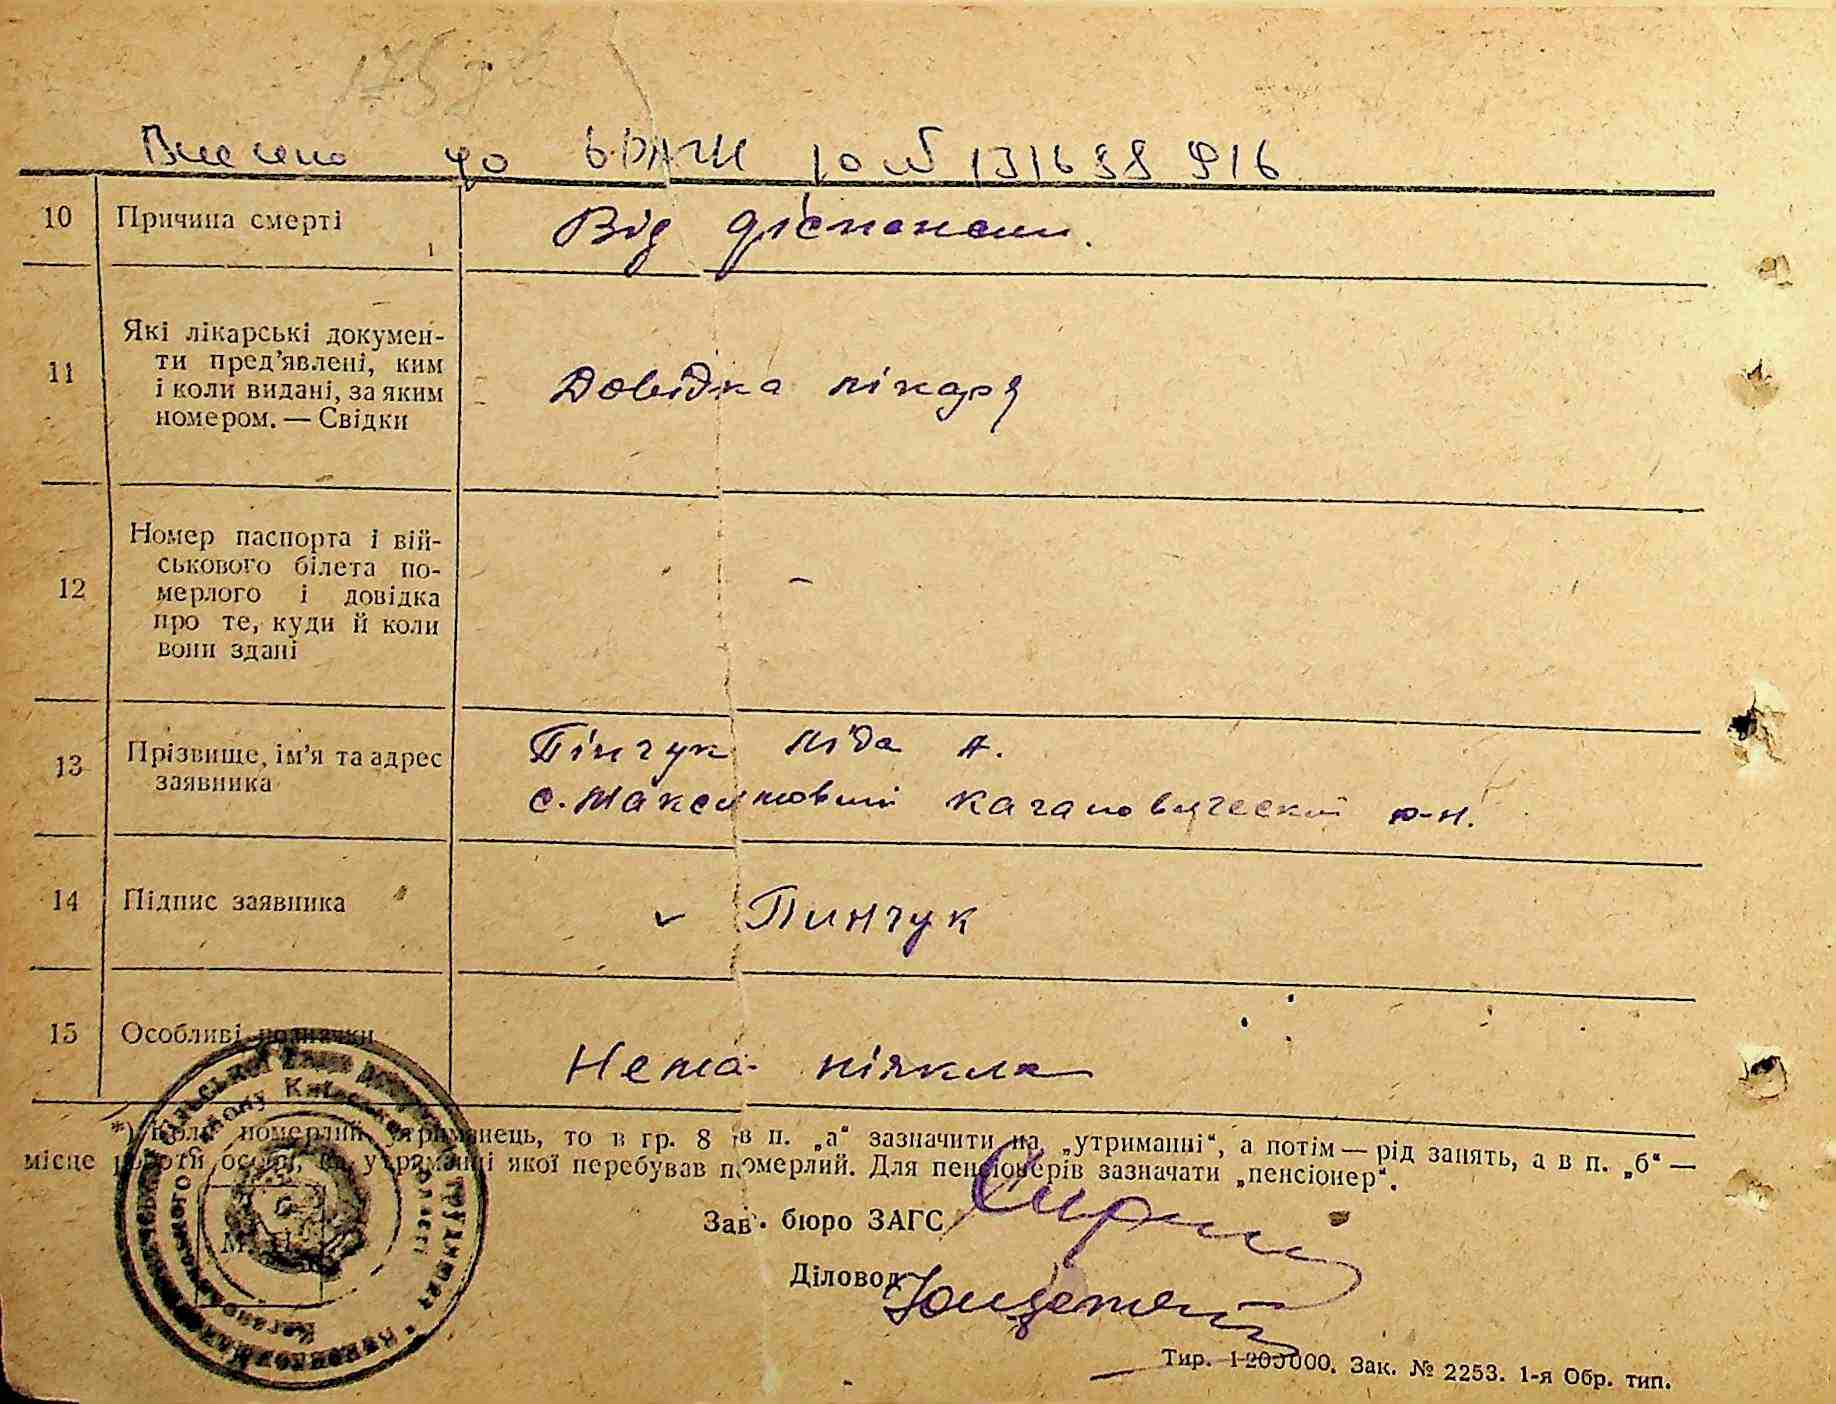 Внесено до
10
Причина смерті
Від діспепсии.
11
Які лікарські докумен-
ти пред’явлені, ким
і коли видані, за яким
номером. — Свідки
Довідка лікаря
12
Номер паспорта і вій-
ськового білета по-
мерлого і довідка
про те, куди й коли
вони здані
–
13
Прізвище, ім’я та адрес
заявника
Пінчук Ліда А.
с. Максимовичі Кагановическый р-н.
14
Підпис заявника
Пинчук
15
Особливі позначки
Нема ніякла
*) Коли померлий утриманець, то в гр. 8 в п. „а“ зазначити на „утриманні“, а потім — рід занять, а в п. „б“ —
місце роботи особи, на утриманні якої перебував померлий. Для пенсіонерів зазначати „пенсіонер“.
Зав. бюро ЗАГС
Діловод
М. П.
Тир. 1200000. Зак. № 2253. 1-я Обр. тип.